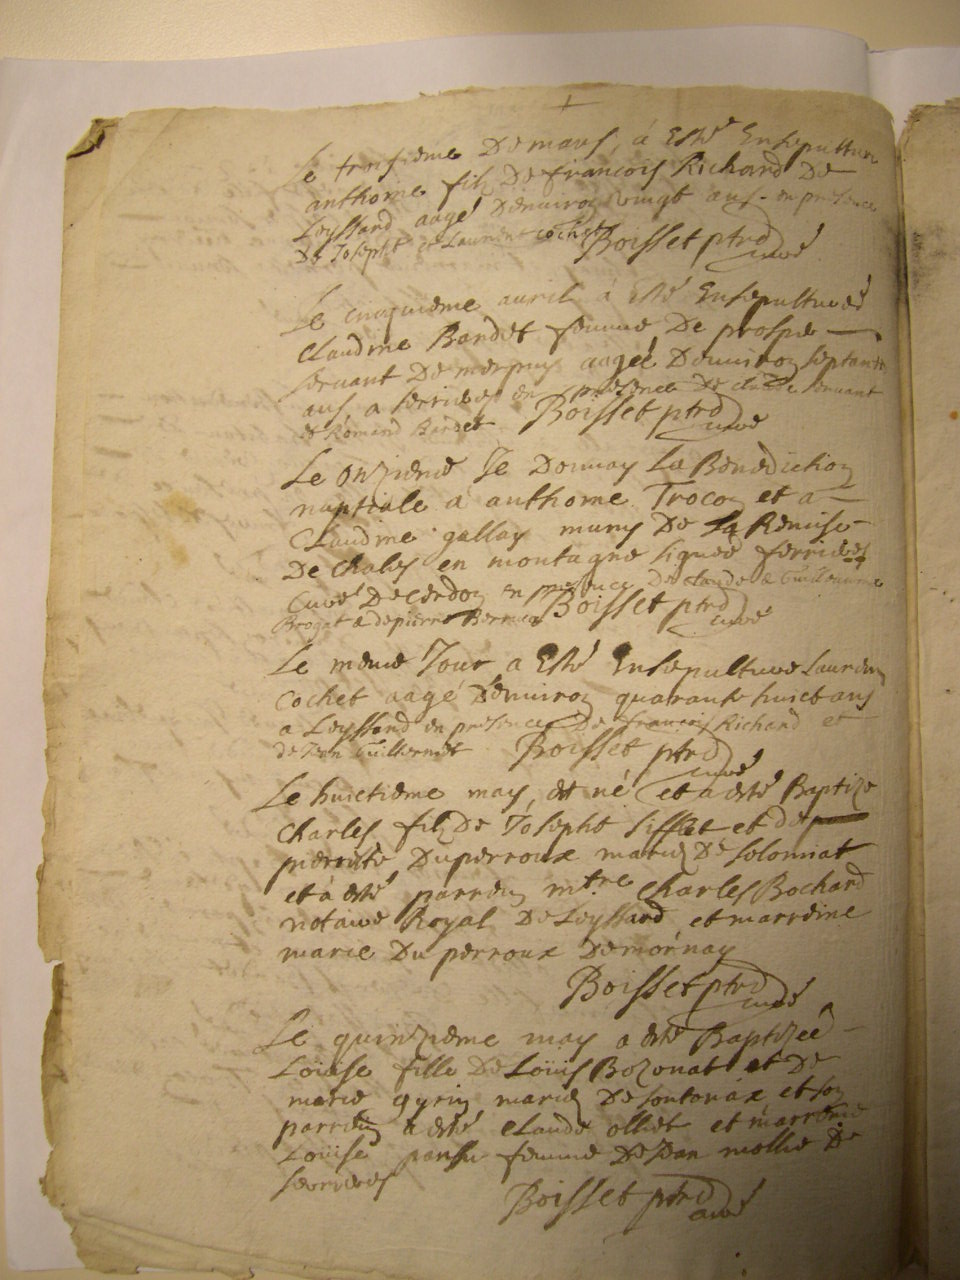 Le troisieme De mars, à Esté Ensepulturé
anthoine filz De francois Richard De
Leyssard aagé Denuiron vingt ans en presence
De Joseph et Laurent cochet Boisset ptre curé
Le cinquieme auril à Esté Ensepulturée
Claudine Bardet femme De prosper
seruant De aagée Denuiron septante
ans, a serrieres en presence De seruant
et Romand Bardet Boisset ptre curé
Le Onzieme Je Donnay La Benediction
nuptiale a anthoine Trocon et a
Claudine gallay munis De La Remise
De Chaley en montagne signée ferrieres
Curé De cerdon en presence De claude & Guillaume
Brogat & de pierre Boisset ptre curé
Le meme Jour a Esté Ensepulturé Laurent
Cochet aagé Denuiron quarante huict ans
a Leyssard en presence De francois Richard et
de Jean Guillermet Boisset ptre curé
Le huictieme may, est né et a esté Baptize
Charles filz De Joseph Sifflet et de
pierrette Duperroux mariez De Solomiat
et à esté parrein mtre Charles Bochard
notaire Royal De Leyssard et marreine
marie Du perroux De mornay
Boisset ptre curé
Le quinzieme may a esté Baptizée
Loüise fille De Loüis Bozonat et De
marie gyrin mariez De sontonax et son
parrein à esté claude olliet et marreine
Loüise pansu femme De Jean mollie De
serrieres
Boisset ptre curé